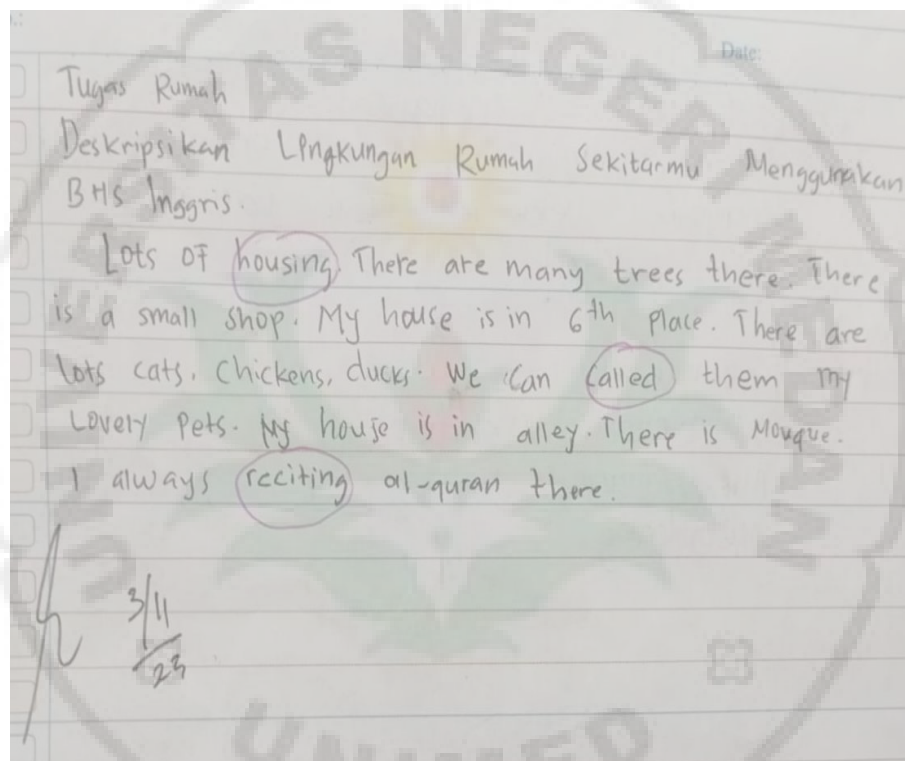 Date:
Tugas Rumah
Deskripsikan Lingkungan Rumah Sekitarmu Menggunakan
BHS Inggris.
Lots of housing. There are many trees there. There
is a small shop. My house is in 6th place. There are
lots cats. Chickens, ducks. We can called them my
Lovely Pets. My house is in alley. There is Mouque.
I always reciting al-quran there.
3/11
/23
UNIVERSITAS NEGERI MEDAN
UNIMED